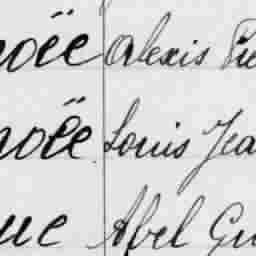 noëe Alexis Pie
noëe Louis Jea
ue Abel Gu